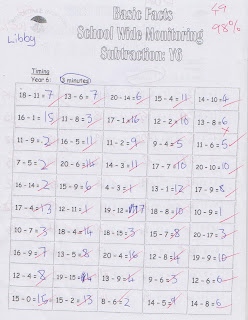 Basic Facts
49
School Wide Monitoring
98%
Libby
Subtraction: Y6
Timing
Year 6: 3 minutes
18 - 11 = 7 13 - 6 = 7 20 - 14 = 6 15 - 4 = 11 14 - 10 = 4
16 - 1 = 15 11 - 8 = 3 17 - 1 = 16 12 - 2 = 10 13 - 8 = 6
11 - 9 = 2 16 - 5 = 11 11 - 2 = 9 9 - 4 = 5 11 - 6 = 5
7 - 5 = 2 20 - 6 = 14 14 - 3 = 11 17 - 7 = 10 16 - 6 = 10
16 - 14 = 2 15 - 9 = 6 4 - 3 = 1 13 - 1 = 12 17 - 9 = 8
17 - 4 = 13 12 - 11 = 1 19 - 12 = 7 18 - 8 = 10 10 - 9 = 1
10 - 7 = 3 18 - 4 = 14 18 - 15 = 3 15 - 7 = 8 20 - 17 = 3
16 - 9 = 7 13 - 5 = 8 20 - 4 = 16 20 - 10 = 10 13 - 10 = 3
12 - 4 = 8 19 - 15 = 4 13 - 9 = 4 9 - 6 = 3 12 - 6 = 6
15 - 0 = 15 15 - 2 = 13 8 - 6 = 2 14 - 5 = 9 14 - 8 = 6